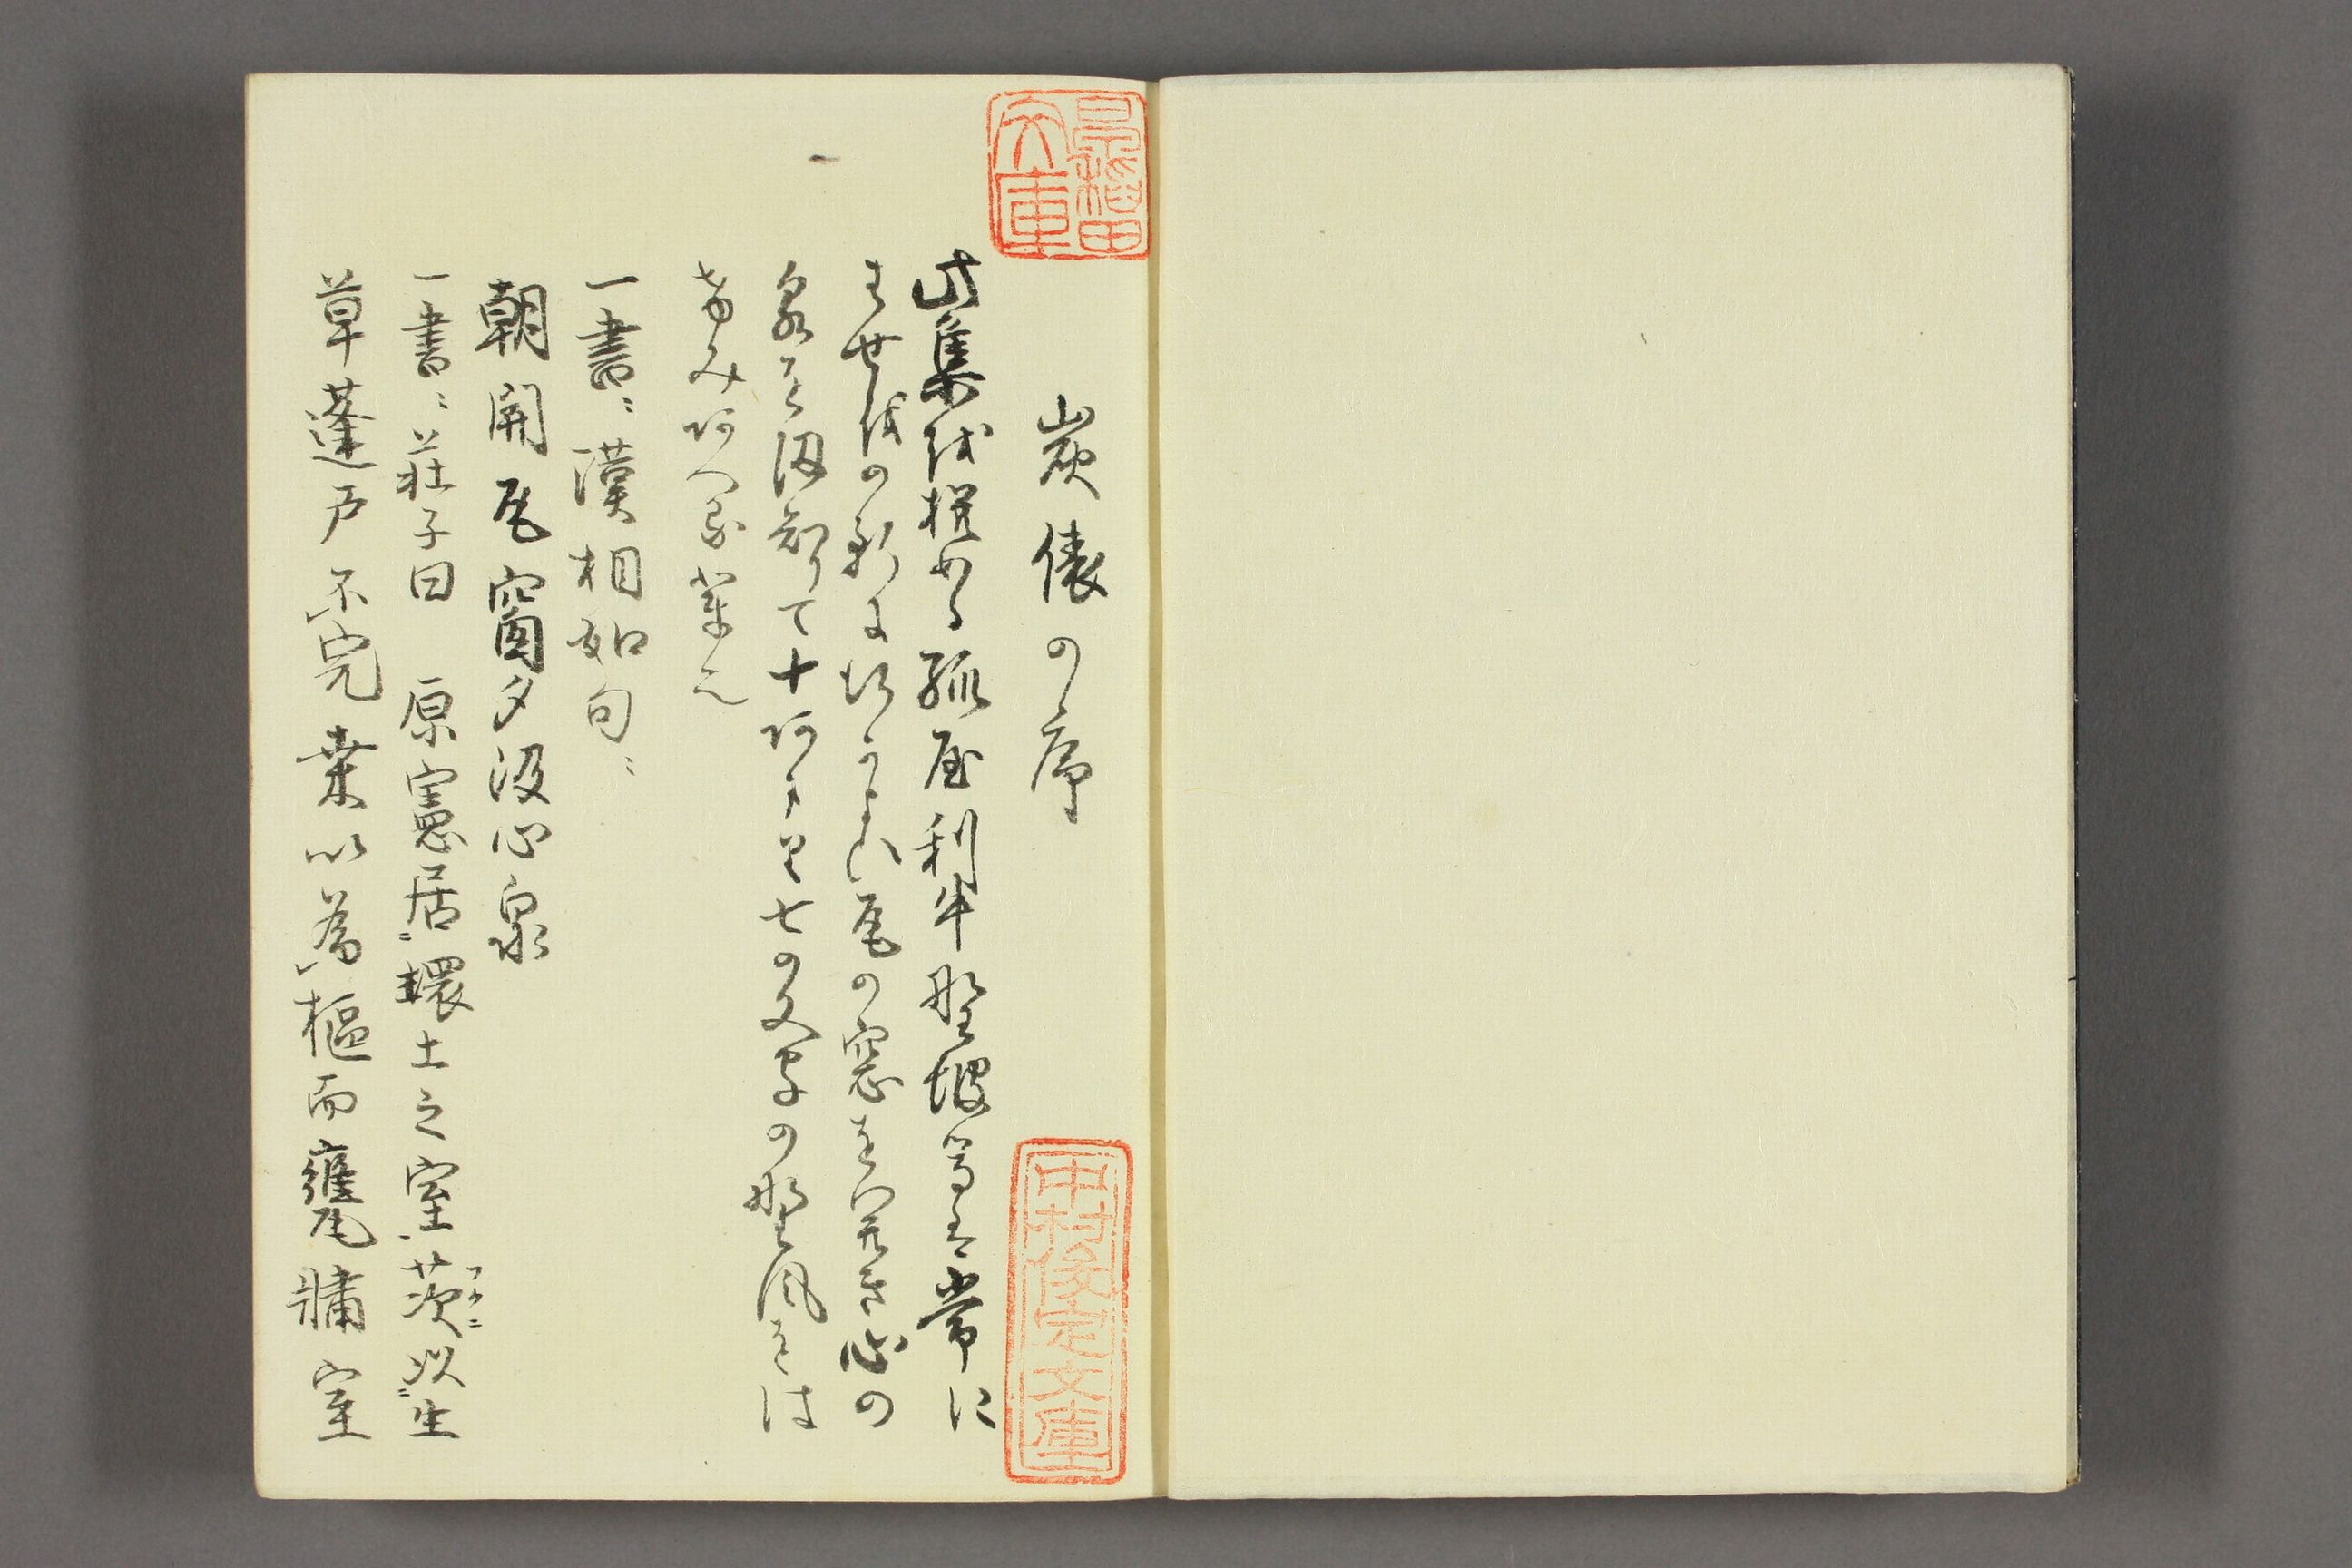 炭俵の序
此集を撰める孤屋利牛野坡等は常に
はせをの軒に行かよひ瓦の窓をひらき心の
泉をくみしりて十あまり七の文字の野風をは
けみあへる輩也
一書ニ漢相如句ニ
朝開瓦窗夕汲心泉
一書ニ荘子曰 原憲居ニ環土之室茨以ニ生
草蓬戸不完桑以為樞而甕牖室
早稲田文庫
中村俊定文庫